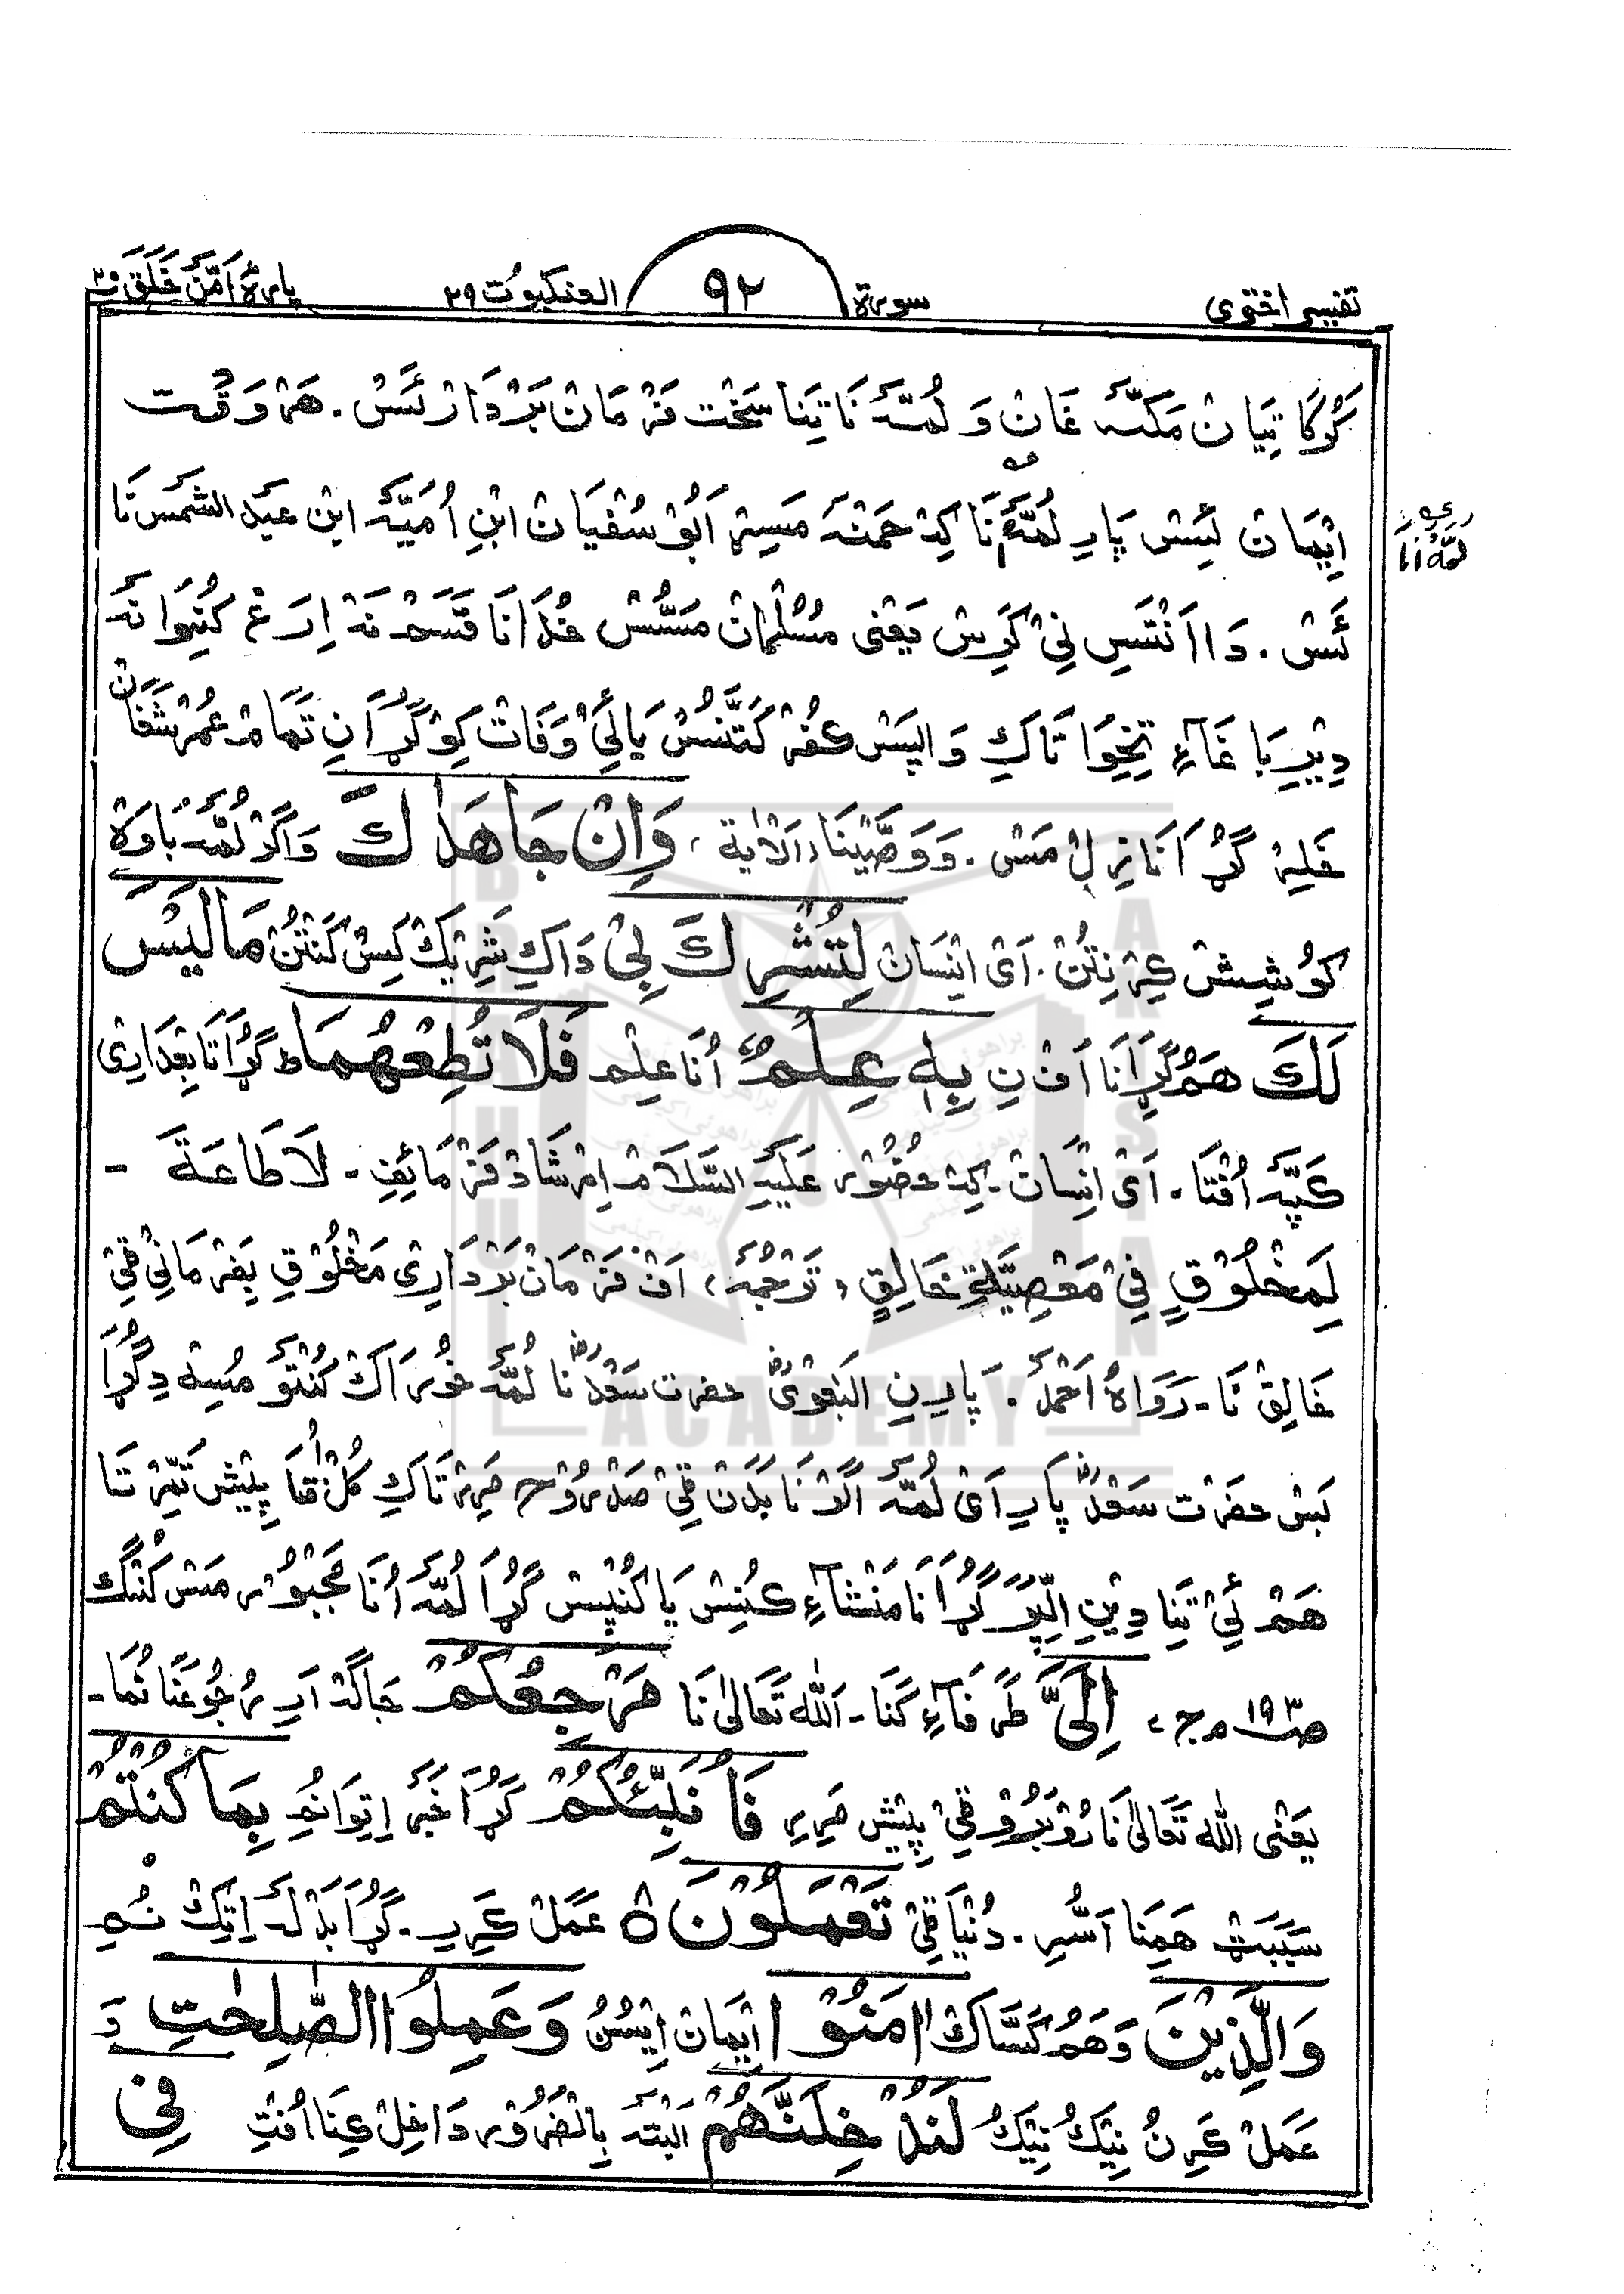 تفسیر اختری سورة ۹۲ العنکبوت ۲۹ پارهٔ اَمَّنْ خَلَقَ ۲۰
کَرْکَا تِیَانْ مَکَّہ غَانْ وَ لُمَّہ نَا تِنَا سَخْت فَرْمَانْ بَرْدَارْ ئَسْ ۔ ہَرْ وَقْت
اِیْمَانْ لِسْسْ پَارِ لُمَّہ اُنَا کِہْ حَمْنَہ مَسِڑْ اَبُوْ سُفْیَانْ ابْنِ اُمَیَّہ ابْنِ عَبْدِ الشَّمْسْ نَا
لُمَّہ اُنَا
ئَسْ ۔ دَا اَنْتَسِ نِیْ کَرِسْ یَعْنٰی مُسْلِمَانْ مَسُّسْ خُدَا نَا قَسَمْ نَہْ اِرَغْ کُنِیْوَا نَہ
دِیْرِ بَا غَآءِ تِخِیْوَا تَاکِہ وَاپَسْ کُفْر کَتَّنُسْ یَا ئِیْ وَفَاتْ کِوْ گُڑَا نِ تَمَامْ عُمْر شَغَانْ
خَلِرْ گُڑَا نَازِلْ مَسْ ۔ وَوَصَّیْنَا، اَلْاٰیَة ، وَاِنْ جَاهَدٰكَ وَاَگَرْ لُمَّہ بَاوَہ
کَوْشِشْ کِرْ نِتُنْ ۔ اَیْ اِنْسَانْ لِتُشْرِكَ بِیْ دَاکِ شَرِیْكْ کِسْ کَنْتُنْ مَا لَیْسَ
لَكَ هَمُ گُڑَانَا اَفْ نِ بِهٖ عِلْمٌ اُنَا عِلْم فَلَا تُطِعْهُمَا ط گُڑَا تَابِعْدَارِیْ
کَپَّہ اُفْتَا ۔ اَیْ اِنْسَانْ ۔ کِہْ حُضُوْر عَلَیْهِ السَّلَامْ اِرْشَادْ فَرْمَائِفِ ۔ لَا طَاعَةَ ۔
لِمَخْلُوْقٍ فِیْ مَعْصِیَةِ خَالِقٍ ، تَرْجُمَہ ، اَفْ فَرْمَانْ بَرْدَارِیْ مَخْلُوْقِ بِفَرْمَانِیْ ٹِیْ
خَالِقْ نَا ۔ رَوَاهُ اَحْمَدُ ۔ پَارِ نِ الْبَغَوِیُّ حضرت سَعْدْ نَا لُمَّہ خُوْرَاكْ کُنْتَوْ مُسِہ دِ گُڑَا
بَسْ حضرت سَعْدْ پَارِ اَیْ لُمَّہ اَگَرْ نَا بَدَنْ ٹِیْ صَدْ رُوْح مَرِرْ تَاکِ کُلْ اُفَا پِیْشْ تَمِّرْ تَا
هَمْ ئِیْ تِنَا دِیْنِ اِلِّپَرْ گُڑَا نَا مَنْشَآءِ کُنِسْ یَا کُنْپِیْسْ گُڑَا لُمَّہ اُنَا مَجْبُوْر مَسْ کُنِنْگ
صـ ۱۹۳ ج ، اِلَیَّ طَرْفَآءِ کَنَا ۔ اَللّٰه تَعَالٰی نَا مَرْجِعُكُمْ جَاگَہ اَرِ رُجُوْعَنَا نُمَا ۔
یَعْنٰی اللّٰه تَعَالٰی نَا رُوْبَرُوْ ٹِیْ پِیْشْ مَرِرِ فَاُنَبِّئُكُمْ گُڑَا خَبَرْ اِتِوْا نُمِ بِمَا كُنْتُمْ
سَبَبَتْ هَمِنَا اَسُّرِ ۔ دُنْیَا ٹِیْ تَعْمَلُوْنَ ٥ عَمَلْ کَرِرِ ۔ گُڑَا بَدْلَہ اِتِكْ نُمِ
وَالَّذِیْنَ وَهَمُ کَسَّاكْ اٰمَنُوْا اِیْمَانْ اِیْسُنْ وَعَمِلُوا الصّٰلِحٰتِ وَ
عَمَلْ کَرِنُ نِیْكُ نِیْكُ لَنُدْخِلَنَّهُمْ اَلْبَتَّہ بِالضَّرُوْر دَاخِلْ کِنَا اُفْتِ فِی